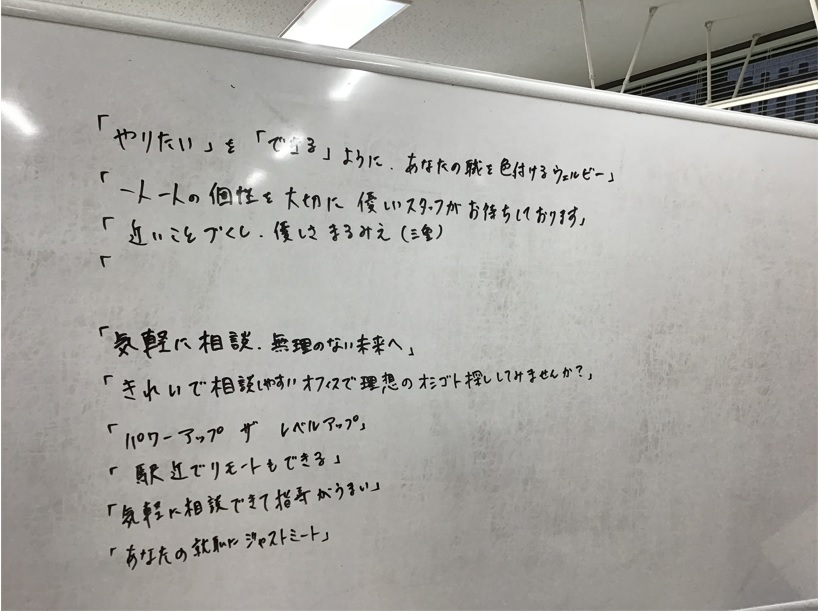 「やりたい」を「できる」ように．あなたの職を色付けるウェルビー」
「一人一人の個性を大切に 優しいスタッフがお待ちしております」
「近いことづくし．優しさまるみえ（三重）
「
「気軽に相談．無理のない未来へ」
「きれいで相談しやすいオフィスで理想のオシゴト探ししてみませんか？」
「パワーアップ ザ レベルアップ」
「駅近でリモートもできる」
「気軽に相談できて指導がうまい」
「あなたの就職にジャストミート」